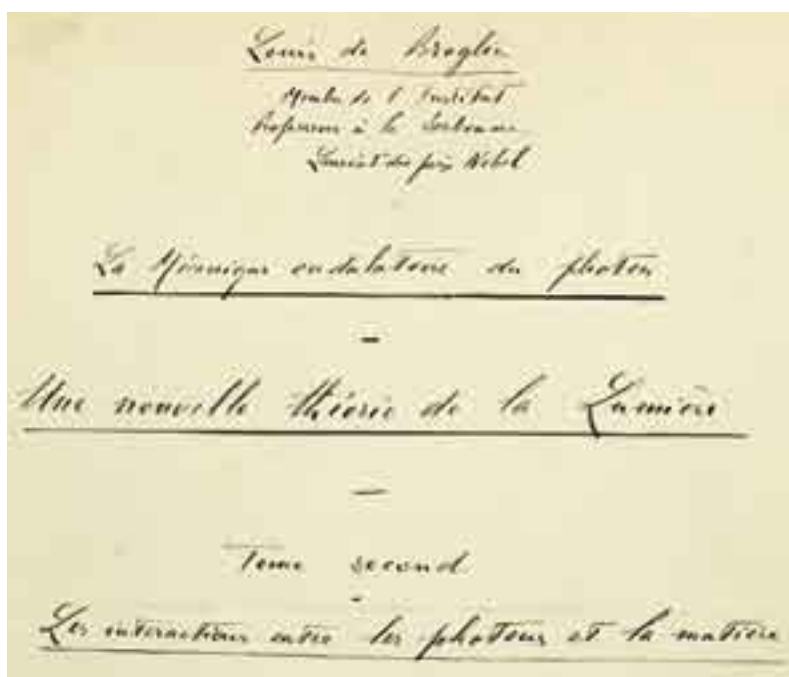 Louis de Broglie
Membre de l'Institut
Professeur à la Sorbonne
Lauréat du prix Nobel
La Mécanique ondulatoire du photon
—
Une nouvelle théorie de la Lumière
—
Tome second
-
Les interactions entre les photons et la matière